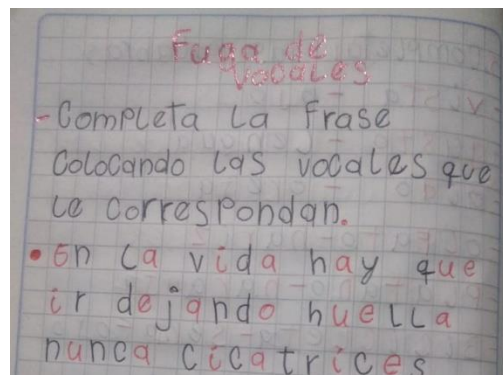 Fuga de
vocales
- Completa la frase
colocando las vocales que
le correspondan.
• En la vida hay que
ir dejando huella
nunca cicatrices